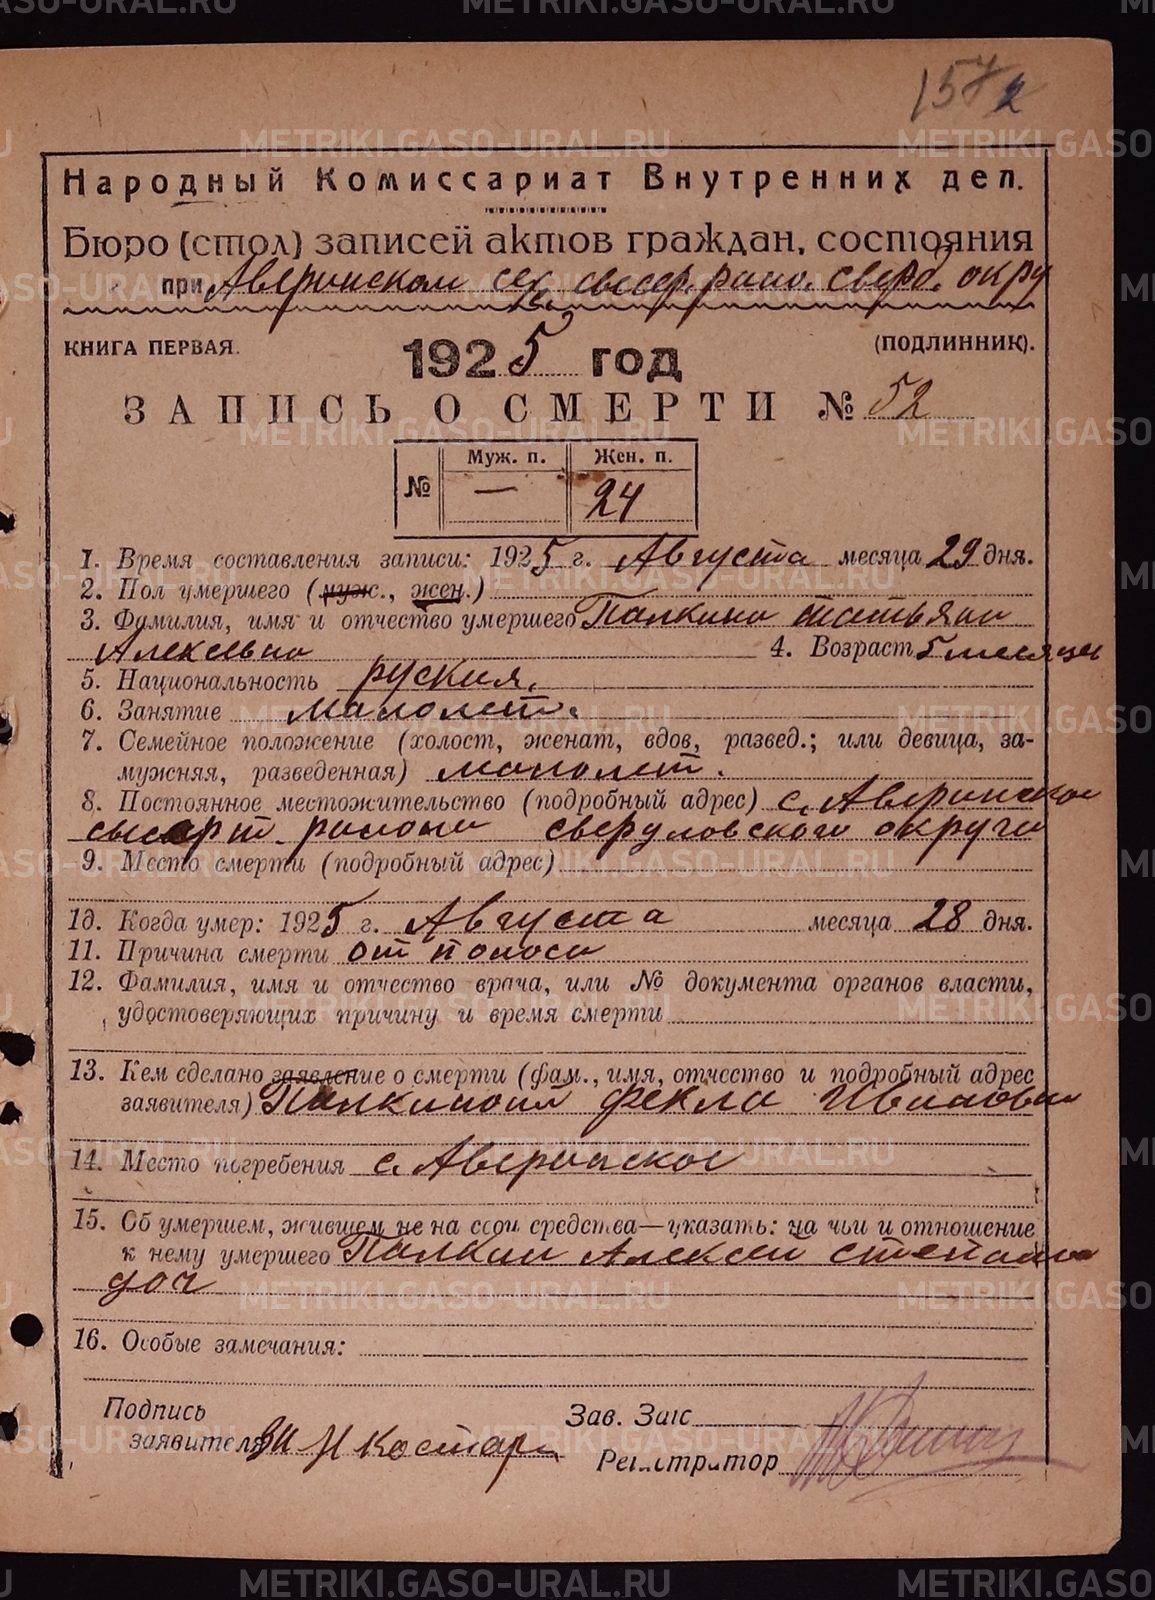 METRIKI.GASO-URAL.RU
157 2
Народный Комиссариат Внутренних дел.
Бюро (стол) записей актов граждан, состояния
при Аверинском сел. сысер. райо. сверд. окру
КНИГА ПЕРВАЯ.
1925 год
(ПОДЛИННИК).
ЗАПИСЬ О СМЕРТИ № 52
№ Муж. п. — Жен. п. 24
1. Время составления записи: 1925 г. Августа месяца 29 дня.
2. Пол умершего (муж., жен.)
3. Фамилия, имя и отчество умершего Палкина татьяна
Алексевна 4. Возраст 5 месяцы
5. Национальность руския.
6. Занятие малолет.
7. Семейное положение (холост, женат, вдов, развед.; или девица, за-
мужняя, разведенная) малолет.
8. Постоянное местожительство (подробный адрес) с. Аверинское
района свердловского округа
9. Место смерти (подробный адрес)
10. Когда умер: 1925 г. Августа месяца 28 дня.
11. Причина смерти от поноса
12. Фамилия, имя и отчество врача, или № документа органов власти,
удостоверяющих причину и время смерти
13. Кем сделано заявление о смерти (фам., имя, отчество и подробный адрес
заявителя) Палкиной фекла Ивановн
14. Место погребения с. Аверинское
15. Об умершем, жившем не на свои средства—указать: на чьи и отношение
к нему умершего Палкин Алексей степано
доч
16. Особые замечания:
Подпись
заявителя
Зав. Загс
Регистратор